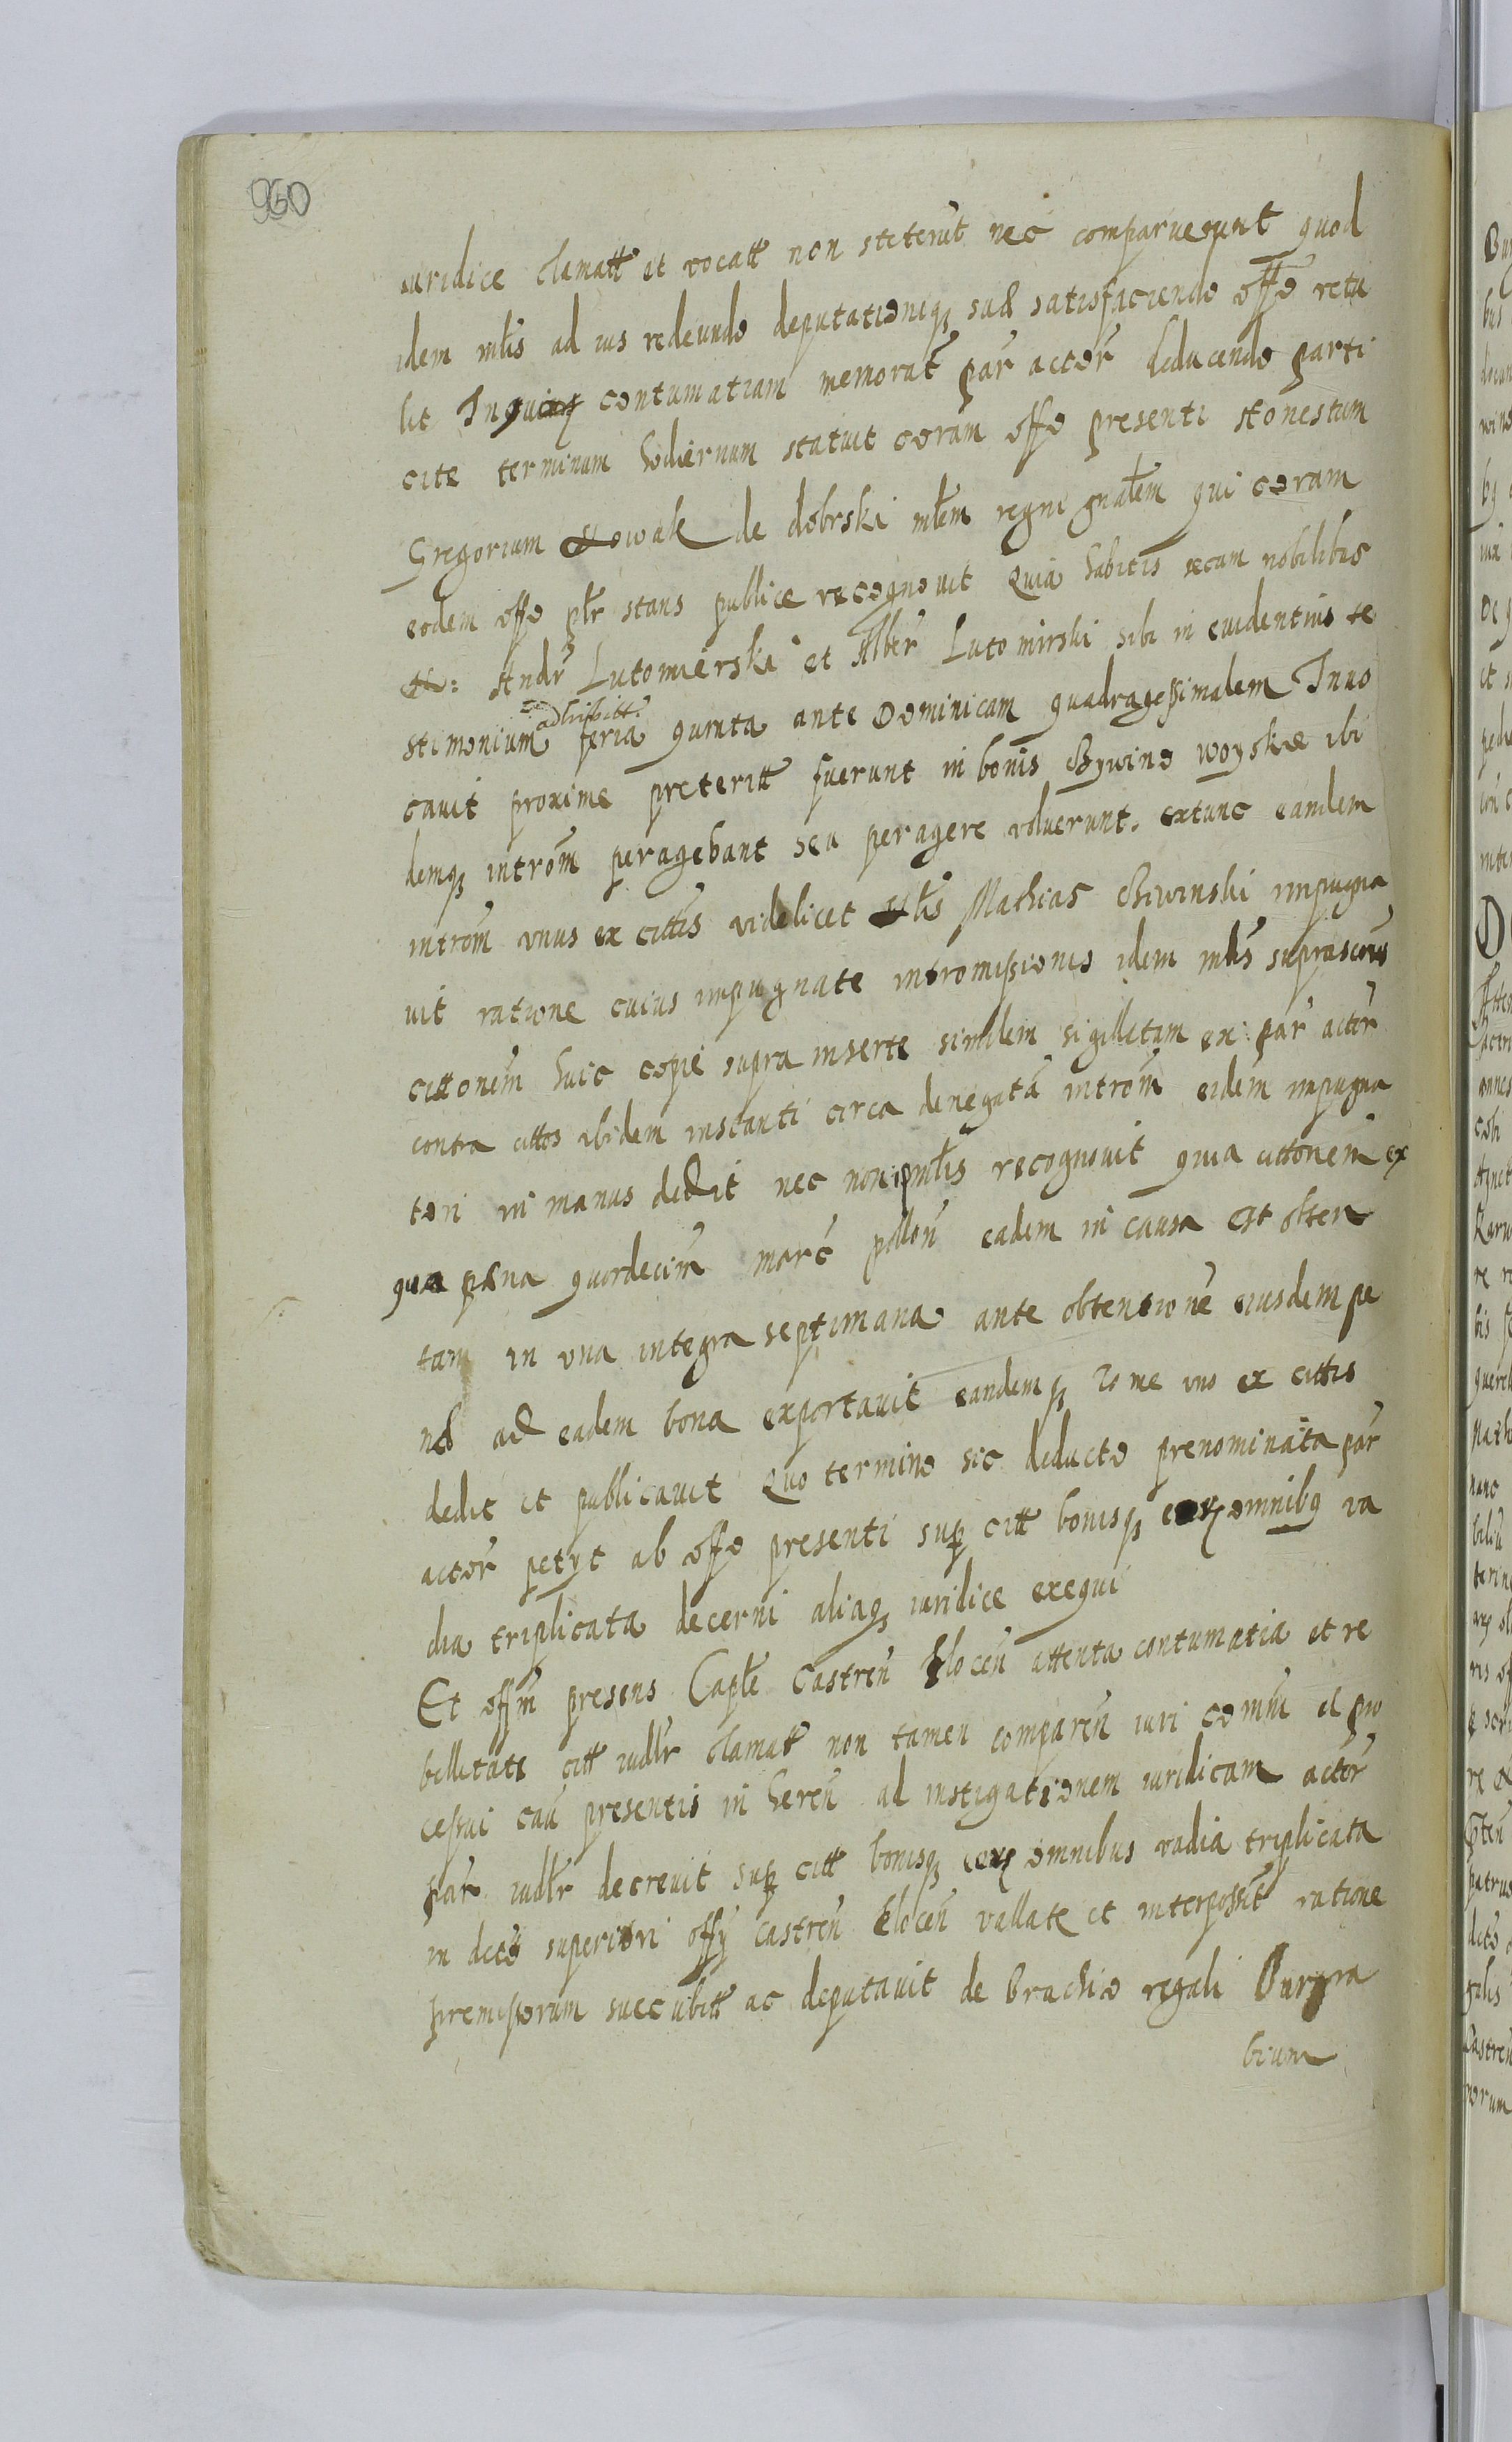 960
iuridice clamatt et vocatt non steterūt nec comparuerunt quod
idem mlis ad ius redeundo deputationiqз suae satisfaciendo offo retu
lit In quoruз contumatiam memorat par actor deducendo parti
cite terminum hodiernum statuit coram offo presenti Honestum
Gregorium Nowak de dobrski mlem regni gnalem qui coram
eodem offo plr stans publice recognovit Quia habitis secum nobilibus
Andr Lutomierski et Alber Lutomirski sibi in evidentius te
adhibitt
stimonium feria quinta ante Dominicam quadragessimalem Invo
cavit proxime preteritt fuerunt in bonis Bywino woyskie ibi
demqз introm peragebant seu peragere voluerunt. extunc eandem
introm vnus ex cittis videlicet Nlis Mathias Biwinski impugna
uit ratione cuius impugnate intromissionis idem mlis suprascrius
cittonem huic copie supra inserte similem sigillatam ex par actor
contra cittos ibidem instanti circa denegatā introm eidem impugna
tori in manus dedit nec non ip mlis recognovit quia cittonem ex
qua pena quordecim marc pollon eadem in causa est obten
tam in vna integra septimana ante obtentione eiusdem pe
nae ad eadem bona exportavit eandemqз vno ex cittis
dedit et publicavit Quo termino sic deducto prenominata par
actor petyt ab offo presenti sup citt bonisqз eorз omnibus va
dia triplicata decerni aliaqз iuridice exequi
Et offm presens Caple Castren Plocen attenta contumatia et re
bellitate citt iudlr clamatt non tamen comparen iuri comūi et pro
cessui cau presentis in heren ad instigationem iuridicam actor
par iudlr decrevit sup citt bonisqз eorз omnibus vadia triplicata
in dcto superiori offy castren Plocen vallate et interpossit ratione
premissorum succubitt ac deputavit de brachio regali Burgra
bium